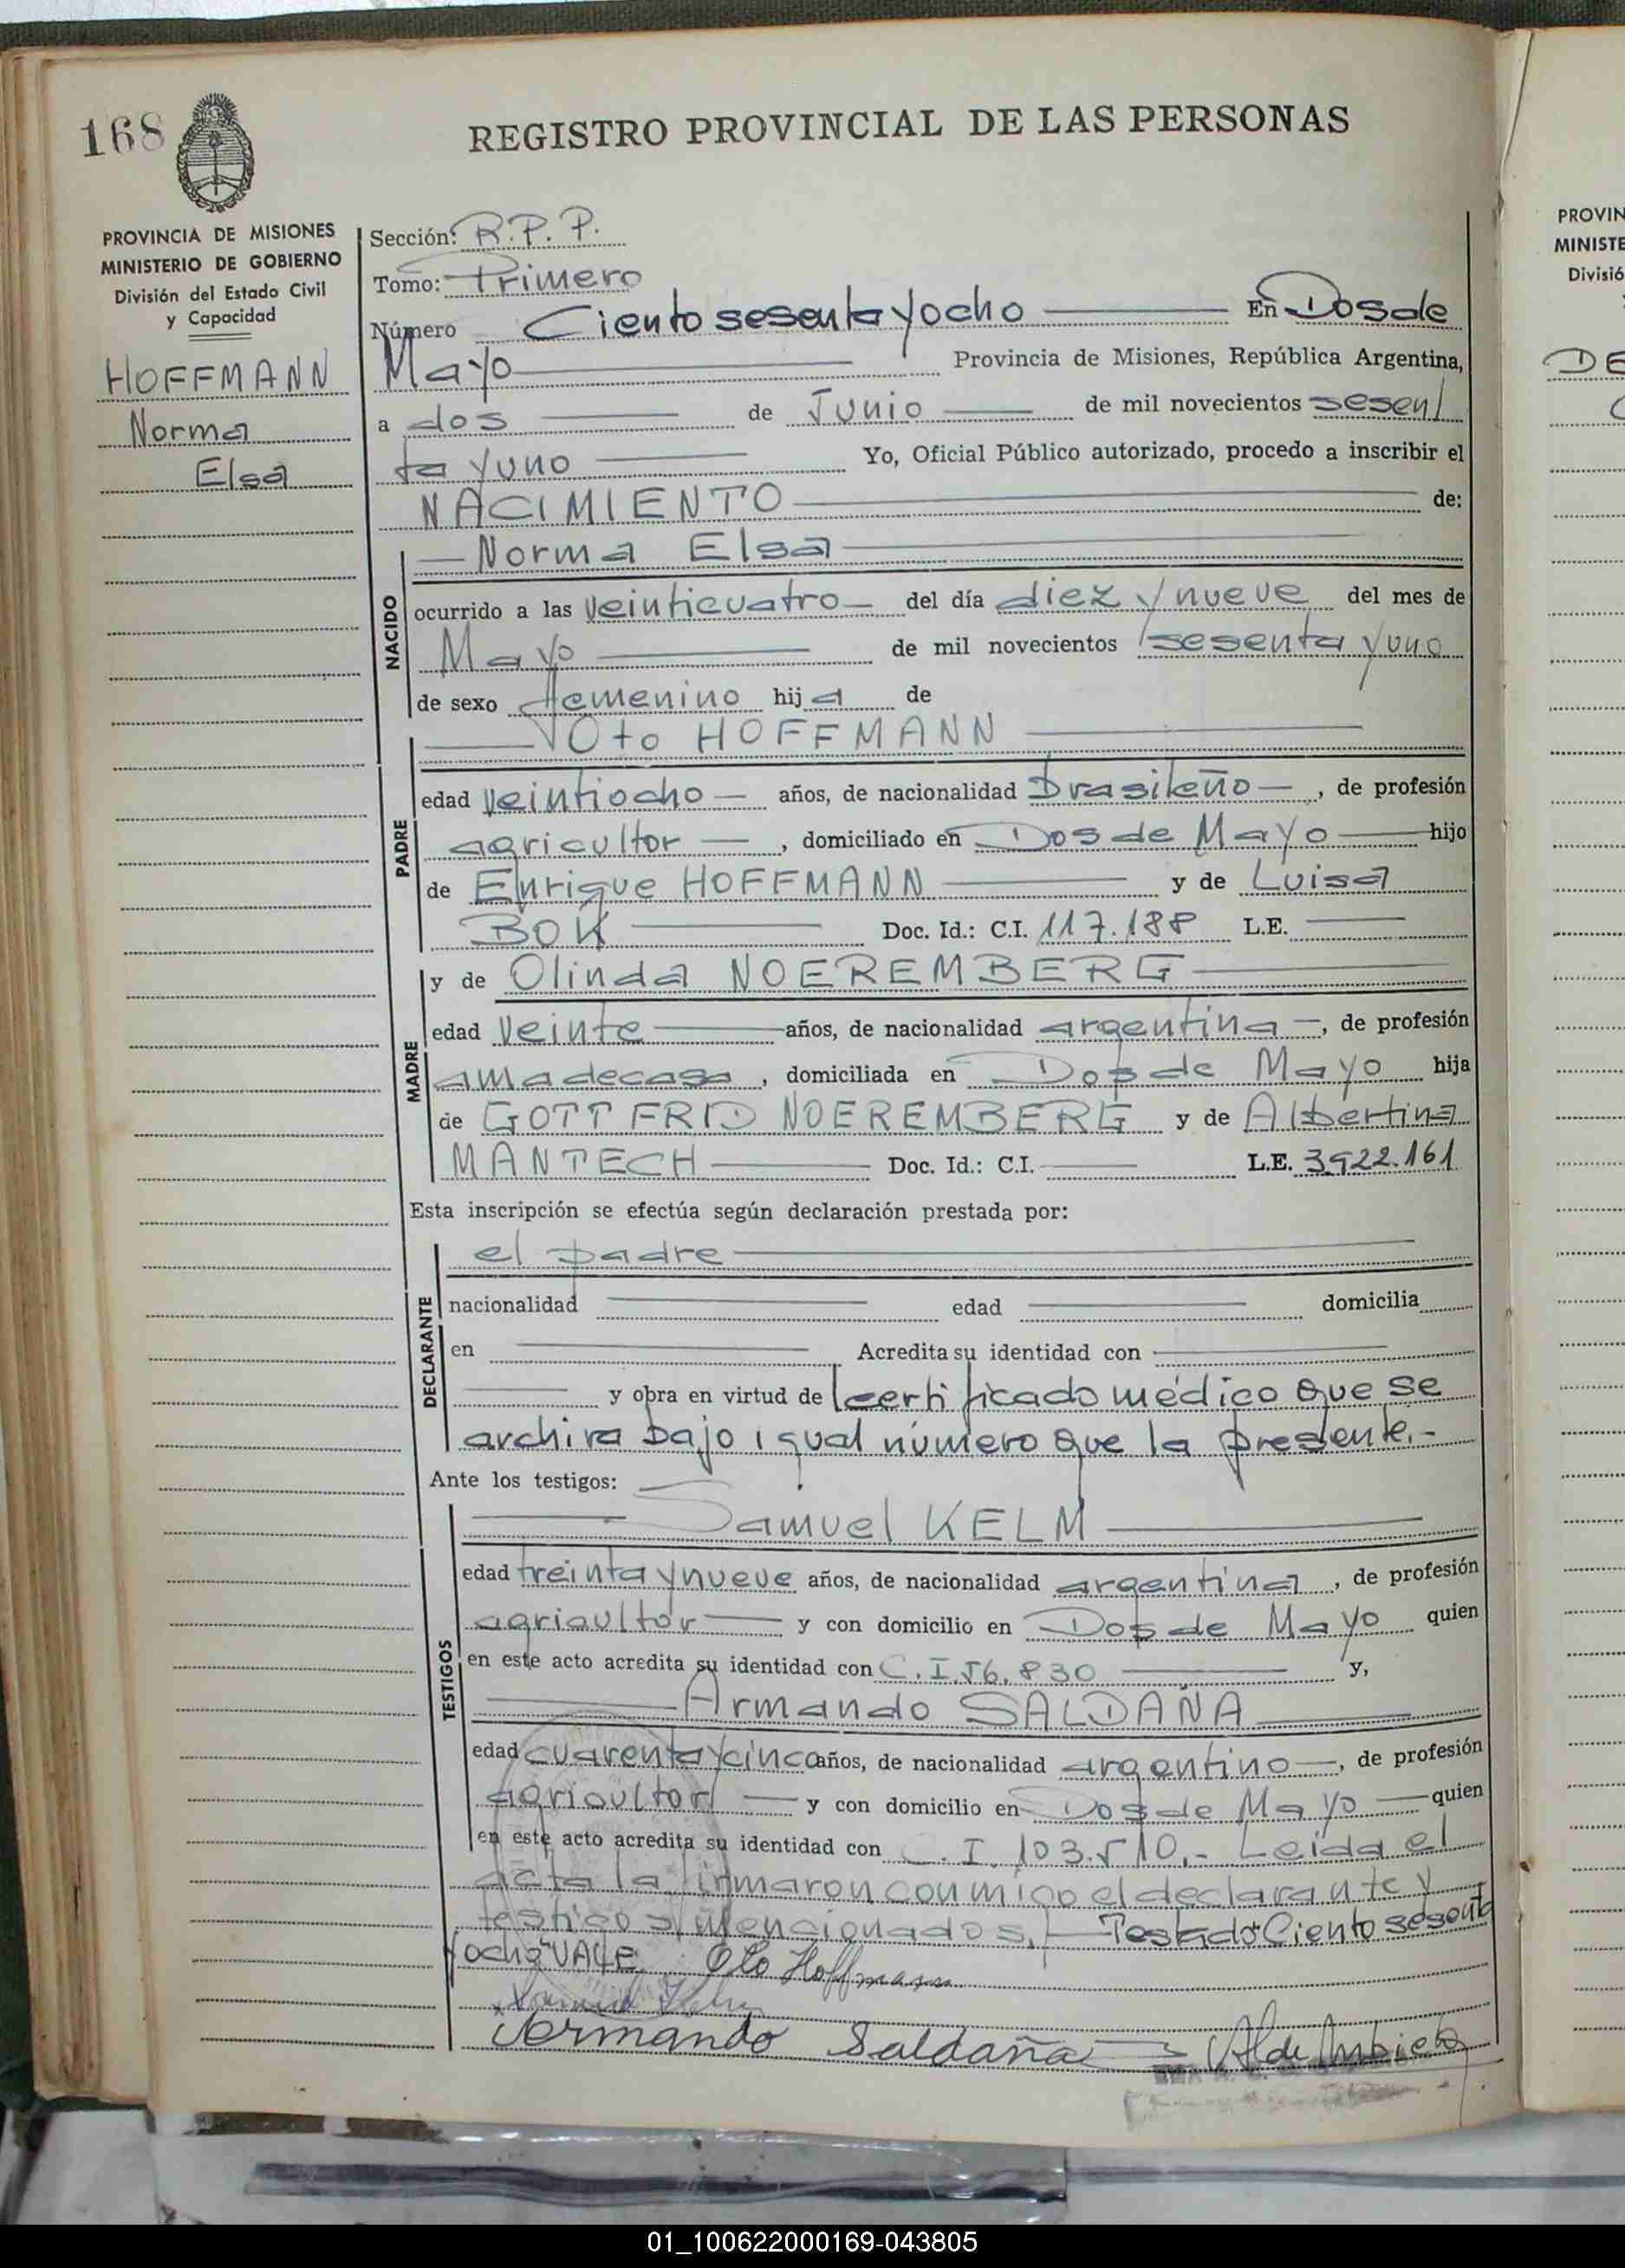 168
REGISTRO PROVINCIAL DE LAS PERSONAS
PROVINCIA DE MISIONES
MINISTERIO DE GOBIERNO
División del Estado Civil
y Capacidad
HOFFMANN
Norma
Elsa
Sección: R.P.P.
Tomo: Primero
Número Ciento sesenta y ocho En Dos de
Mayo Provincia de Misiones, República Argentina,
a dos de Junio de mil novecientos sesen
ta y uno Yo, Oficial Público autorizado, procedo a inscribir el
NACIMIENTO de:
NACIDO
Norma Elsa
ocurrido a las veinticuatro del día diez y nueve del mes de
Mayo de mil novecientos sesenta y uno
de sexo femenino hija de
PADRE
Oto HOFFMANN
edad veintiocho años, de nacionalidad brasileño, de profesión
agricultor, domiciliado en Dos de Mayo hijo
de Enrique HOFFMANN y de Luisa
BOK Doc. Id.: C.I. 117.188 L.E.
MADRE
y de Olinda NOEREMBERG
edad veinte años, de nacionalidad argentina, de profesión
ama de casa, domiciliada en Dos de Mayo hija
de GOTTFRID NOEREMBERG y de Albertina
MANTECH Doc. Id.: C.I. L.E. 3.922.161
Esta inscripción se efectúa según declaración prestada por:
DECLARANTE
el padre
nacionalidad edad domicilia
en Acredita su identidad con
y obra en virtud de certificado médico que se
archiva bajo igual número que la presente.-
Ante los testigos:
TESTIGOS
Samuel KELM
edad treinta y nueve años, de nacionalidad argentina, de profesión
agricultor y con domicilio en Dos de Mayo quien
en este acto acredita su identidad con C.I. 56.830 y,
Armando SALDAÑA
edad cuarenta y cinco años, de nacionalidad argentino, de profesión
agricultor y con domicilio en Dos de Mayo quien
en este acto acredita su identidad con C.I. 103.510.- Leída el
acta la firmaron conmigo el declarante y
testigos mencionados.- Testado "Ciento sesenta
y ocho" VALE. Oto Hoffmann
Armando Saldaña
PROVIN
MINISTE
Divisió
DE
01_100622000169-043805